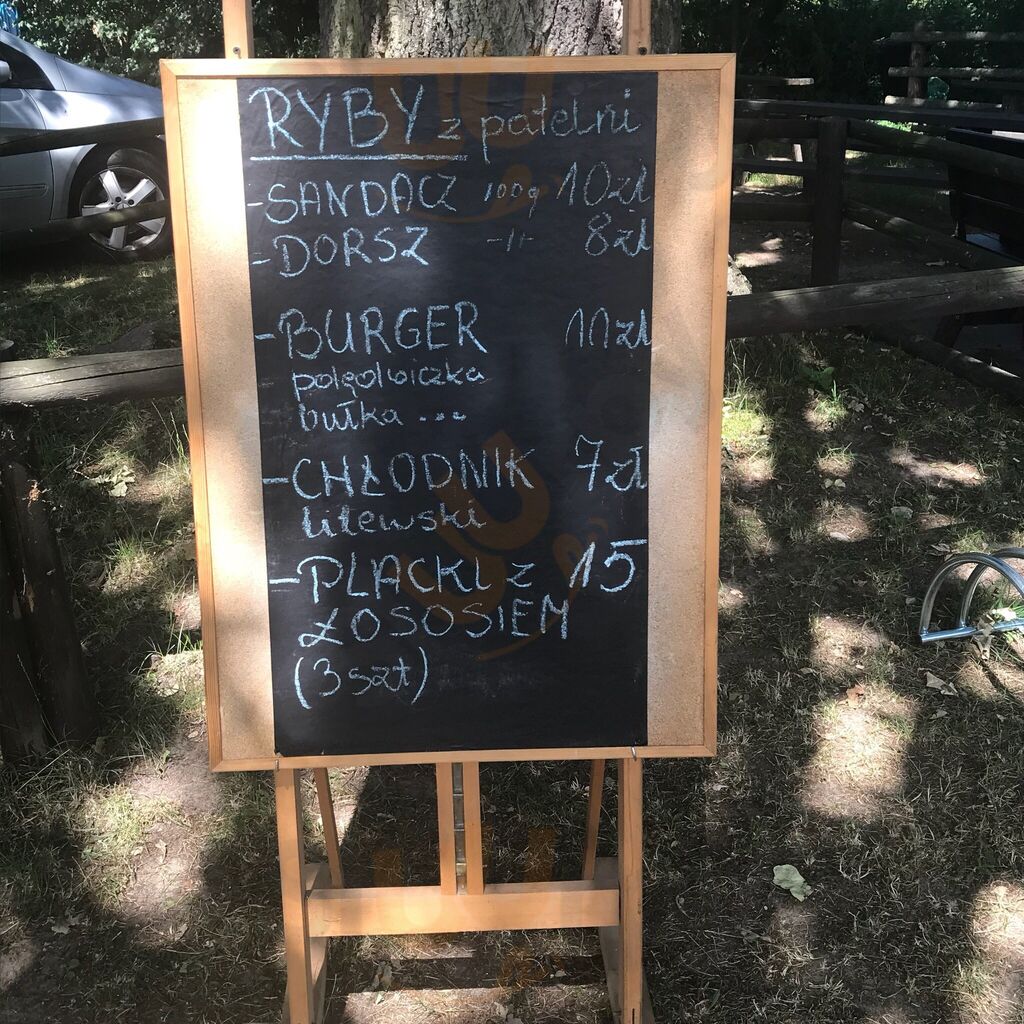 RYBY z patelni
- SANDACZ 100g 10zł
- DORSZ -||- 8zł
- BURGER 11zł
polędwiczka
bułka ...
- CHŁODNIK 7zł
litewski
- PLACKI z 15
ŁOSOSIEM
(3 szt)